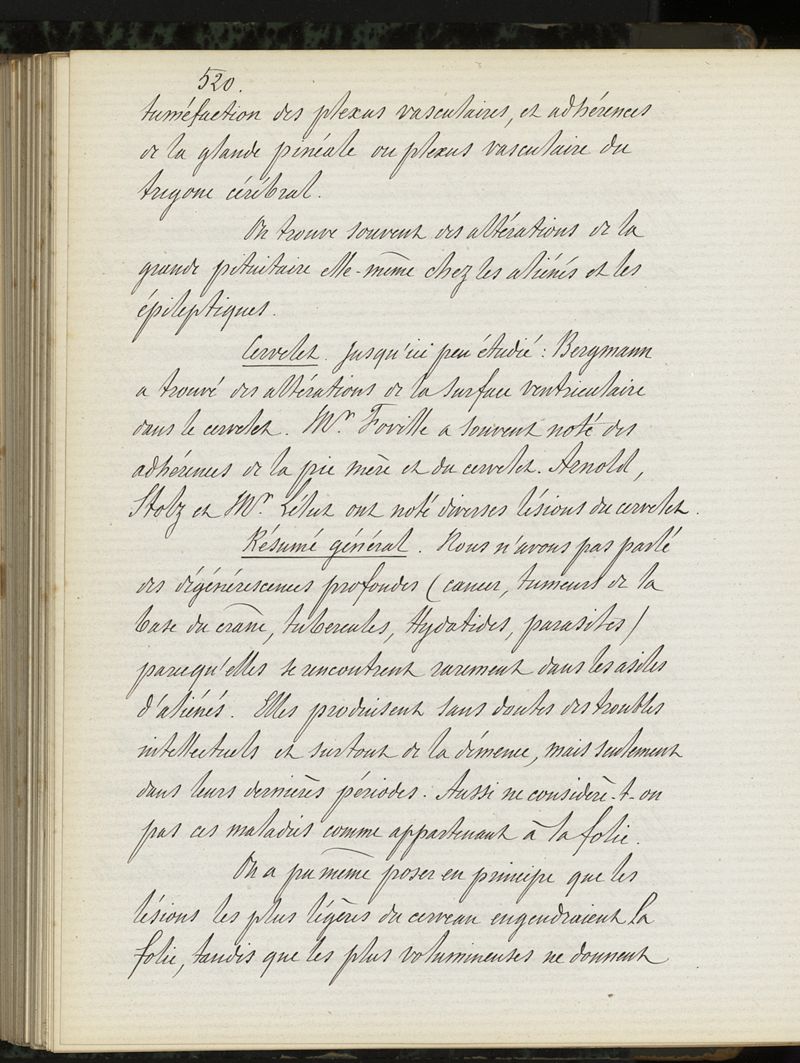 520.
tuméfaction des plexus vasculaires, et adhérences
de la glande pinéale ou plexus vasculaire du
trigone cérébral.
On trouve souvent des altérations de la
grande pituitaire elle-même chez les aliénés et les
épileptiques.
Cervelet. Jusqu'ici peu étudié : Bergmann
a trouvé des altérations de la surface ventriculaire
dans le cervelet. Mr. Foville a souvent noté des
adhérences de la pie mère et du cervelet. Arnold,
Stolz et Mr. Lélut ont noté diverses lésions du cervelet.
Résumé général. Nous n'avons pas parlé
des dégénérescences profondes (cancer, tumeurs de la
base du crâne, tubercules, Hydatides, parasites)
parcequ'elles se rencontrent rarement dans les asiles
d'aliénés. Elles produisent sans doutes des troubles
intellectuels et surtout de la démence, mais seulement
dans leurs dernières périodes. Aussi ne considère-t-on
pas ces maladies comme appartenant à la folie.
On a pu même poser en principe que les
lésions les plus légères du cerveau engendraient la
folie, tandis que les plus volumineuses ne donnent